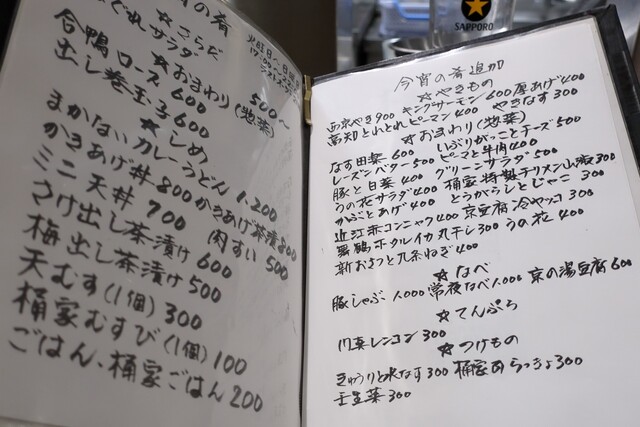 の肴
☆さらだ
ぐれサラダ 500〜
☆おまわり(惣菜)
合鴨ロース 600
出し巻玉子 600
☆しめ
まかないカレーうどん 1.200
かきあげ丼 800 かきあげ茶漬 800
ミニ天丼 700 肉すい 500
さけ出し茶漬け 600
梅出し茶漬け 500
天むす(1個) 300
桶家むすび(1個) 100
ごはん、桶家ごはん 200
SAPPORO
今宵の肴追加
☆やきもの
西京やき 900 キングサーモン 600 厚あげ 400
高知とれとれピーマン 400 やきなす 300
☆おまわり(惣菜)
なす田楽 600 いぶりがっことチーズ 500
レーズンバター 500 ピーマンと牛肉 400
豚と白菜 400 グリーンサラダ 500
うの花サラダ 400 桶家特製チリメン山椒 300
かぶとあげ 400 とうがらしとじゃこ 300
近江赤コンニャク 400 京豆腐冷ヤッコ 300
舞鶴ホタルイカ丸干し 300 うの花 400
新おさつと九条ねぎ 400
☆なべ
豚しゃぶ 1.000 常夜なべ 1.000 京の湯豆腐 600
☆てんぷら
川真レンコン 300
☆つけもの
きゅうりと水なす 300 桶家のらっきょ 300
壬生菜 300